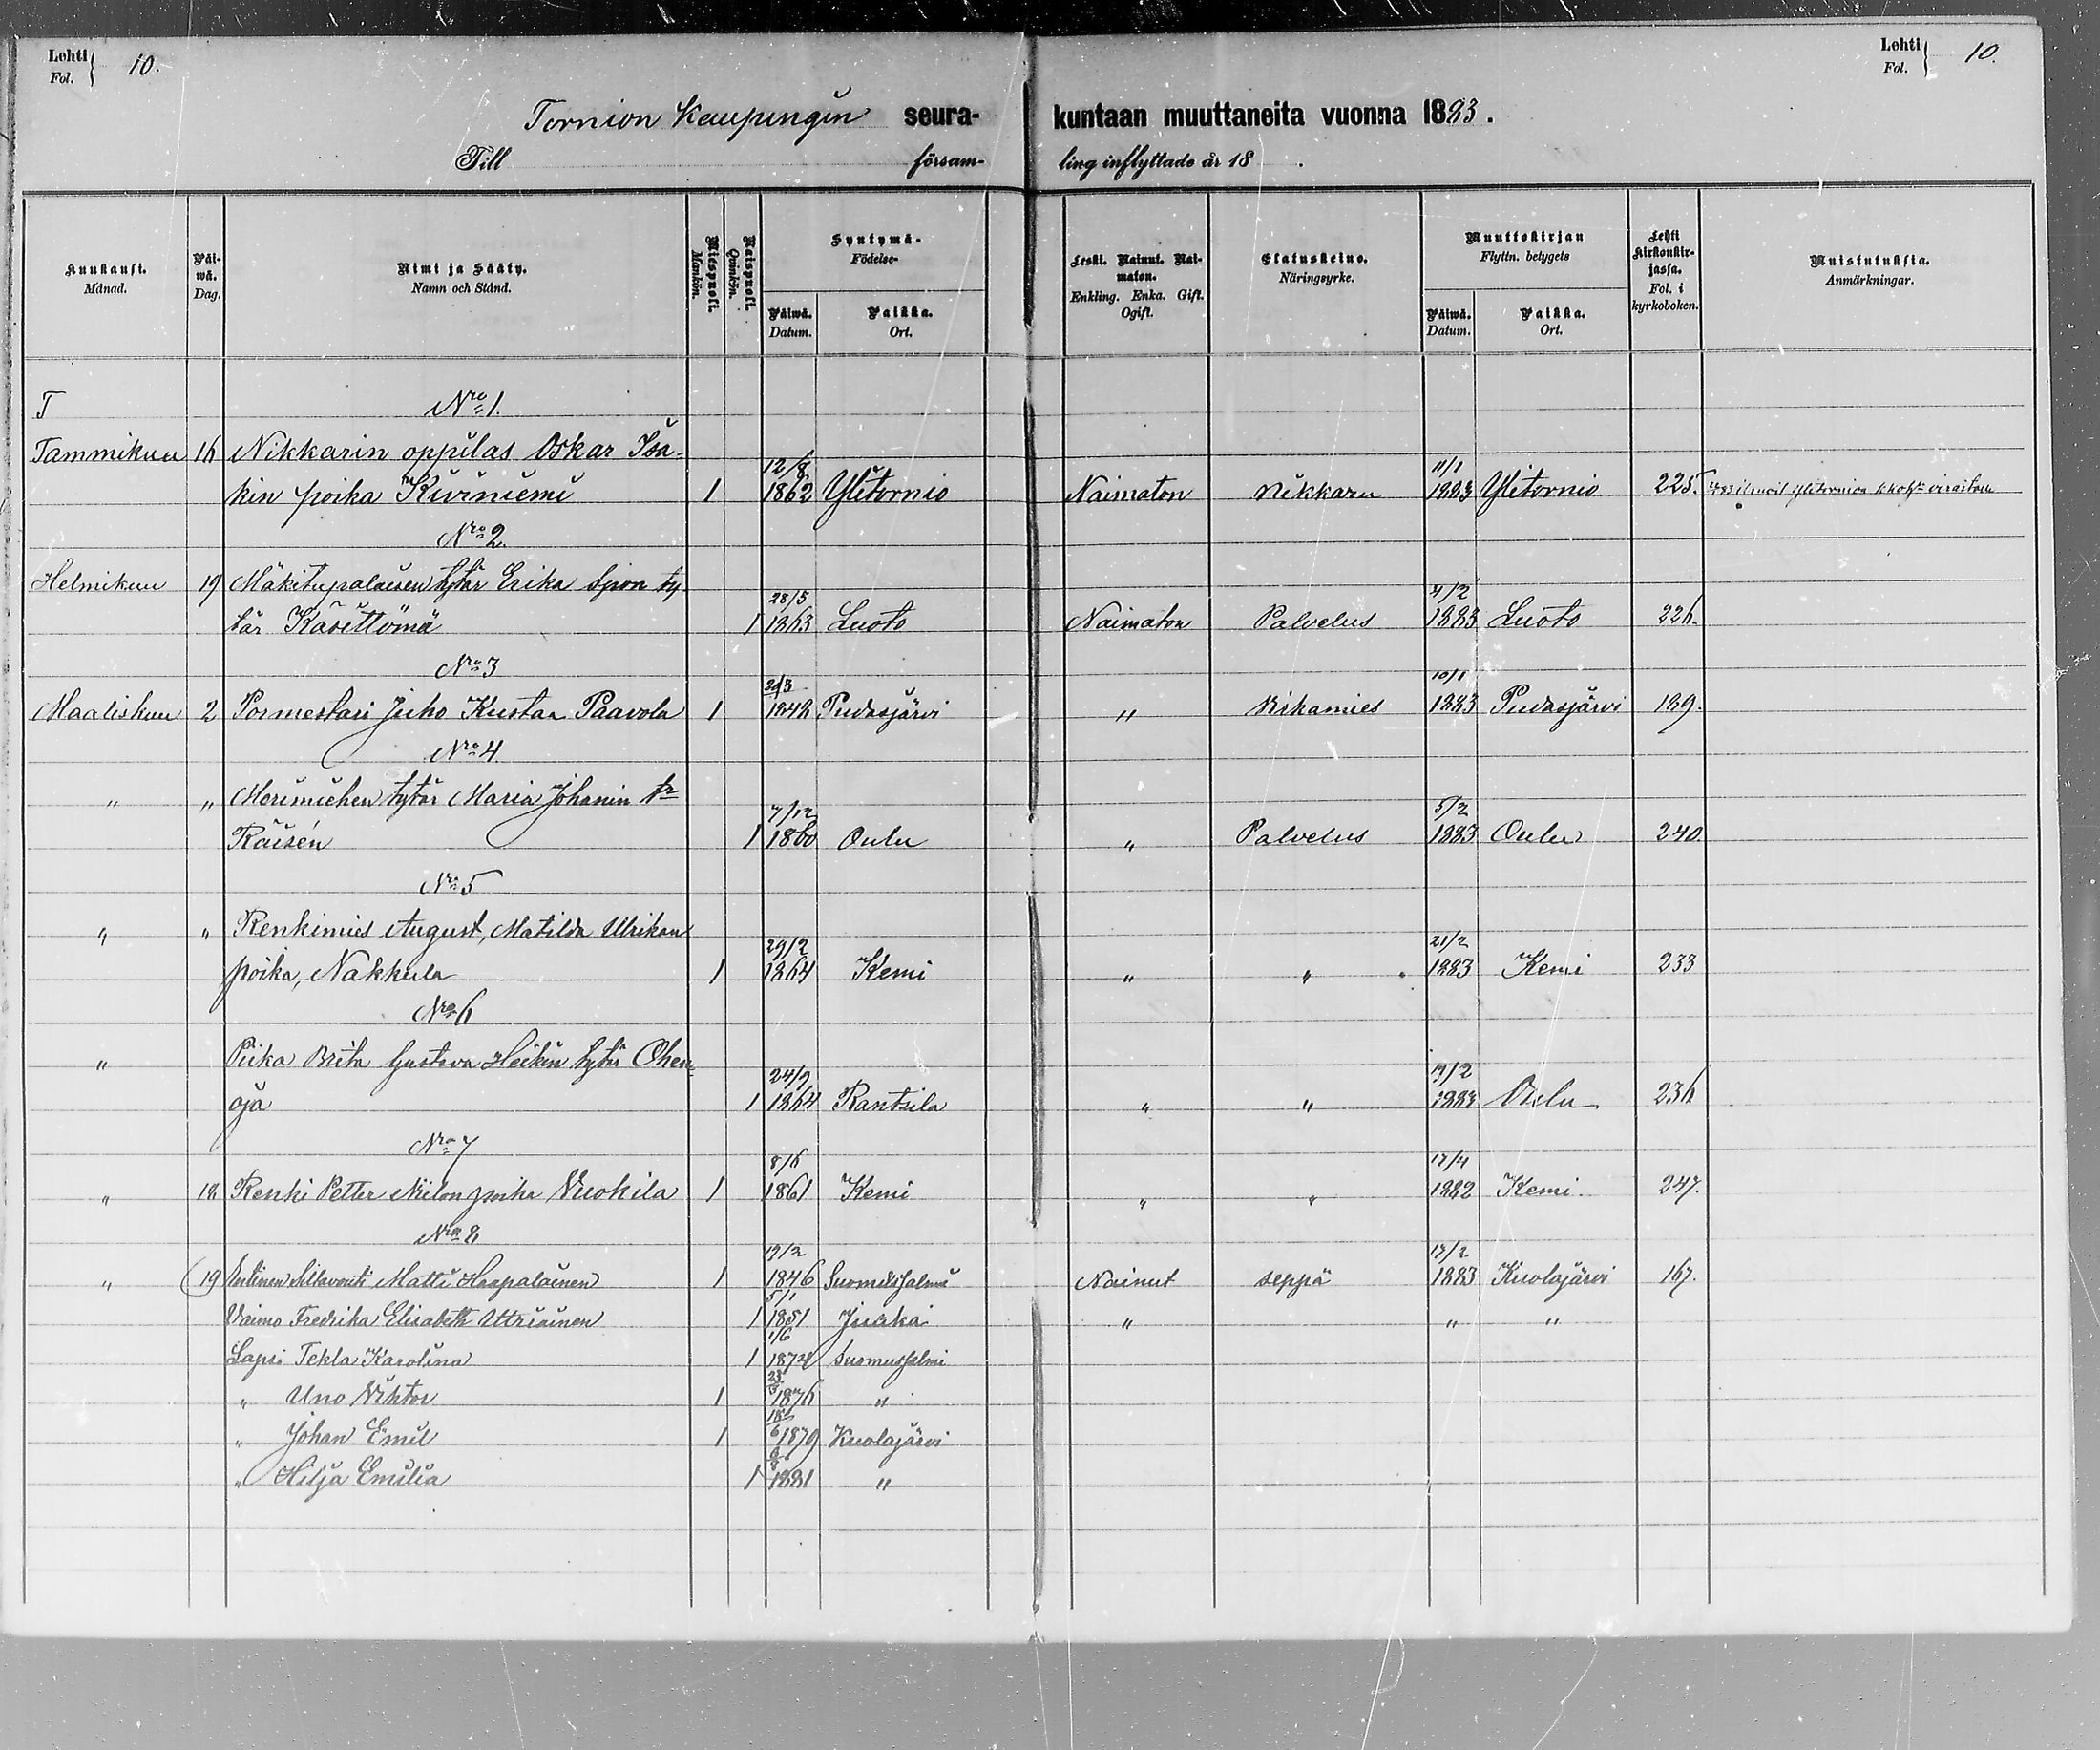 Lehti
Fol. 10.
Lehti
Fol. 10.
Tornion Kaupungin seura- kuntaan muuttaneita vuonna 1883.
Till församling inflyttade år 18 .
Kuukausi. Månad.
Päiwä. Dag.
Nimi ja Sääty. Namn och Stånd.
Miespuoli. Mankön.
Naispuoli. Qvinkön.
Syntymä- Födelse-
Päiwä. Datum.
Paikka. Ort.
Leski. Nainut. Naimaton. Enkling. Enka. Gift. Ogift.
Elatuskeino. Näringsyrke.
Muuttokirjan Flyttn. betygets
Päiwä. Datum.
Paikka. Ort.
Lehti kirkonkirjassa. Fol. i kyrkoboken.
Muistutuksia. Anmärkningar.
T Nro 1.
Tammikuu 16 Nikkarin oppilas Oskar Isa-
kin poika Kiviniemi 1 12/8 1862 Ylitornio Naimaton Nikkari 11/1 1883 Ylitornio 225.
Nro 2.
Helmikuu 19 Mäkitupalaisen tytär Erika Sipon ty-
tär Kävittömä 1 28/5 1863 Luoto Naimaton Palvelus 4/2 1883 Luoto 226.
Nro 3
Maaliskuu 2 Pormestari Juho Kustaa Paavola 1 1848 Pudasjärvi " Virkamies 10/1 1883 Pudasjärvi 189.
Nro 4
" " Merimiehen tytär Maria Johanin tr
Räisén 1 7/12 1860 Oulu " Palvelus 5/2 1883 Oulu 240.
Nro 5
" " Renkimies August, Matilda Ulrikan
poika, Nakkula 1 29/2 1864 Kemi " " 21/2 1883 Kemi 233
Nro 6
" Piika Brita Gustava Heikin tytär Ohen-
oja 1 24/9 1864 Rantsila " " 19/2 1883 Oulu 236
Nro 7
" 18 Renki Petter Niilon poika Vuokila 1 8/6 1861 Kemi " " 17/4 1882 Kemi 247.
Nro 8
" 19 Entinen Siltavouti Matti Haapalainen 1 19/2 1846 Suomussalmi Nainut seppä 13/2 1883 Kuolajärvi 167.
Vaimo Fredrika Elisabeth Uttriainen 1 5/1 1851 Juuka " " "
Lapsi Tekla Karolina 1 1/6 1874 Suomussalmi
" Uno Viktor 1 23/5 1876 "
" Johan Emil 1 18/6 1879 Kuolajärvi
" Hilja Emilia 1 6/8 1881 "